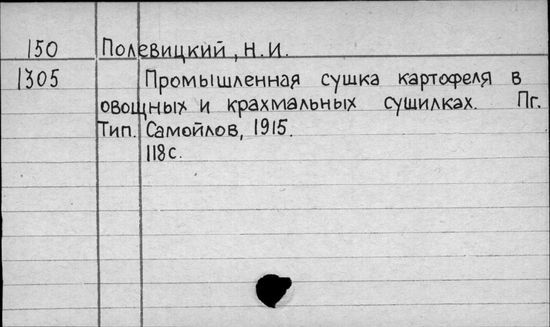 150 Полевицкий, Н.И.
1305 Промышленная сушка картофеля в
овощных и крахмальных сушилках. Пг.
Тип. Самойлов, 1915.
118 с.